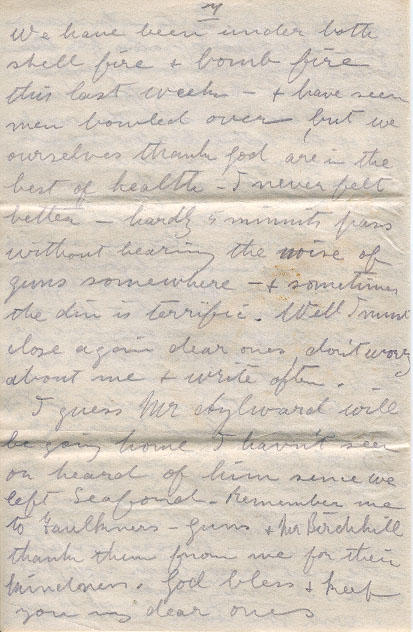 7
We have been under both
shell fire & bomb fire
this last weeks - & have seen
men bowled over, but we
ourselves thank god are in the
best of health - I never felt
better - hardly 5 minnits pass
without hearing the noise of
guns somewhere - & sometimes
the din is terrific. Well I must
close again dear ones, don't worry
about me & write often.
I guess Mr Aylward will
be going home I havn't seen
or heard of him since we
left Seaford - Remember me
to Faulkners - guns & Mr Birchhill
thank them from me for their
kindness. God bless & keep
you my dear ones